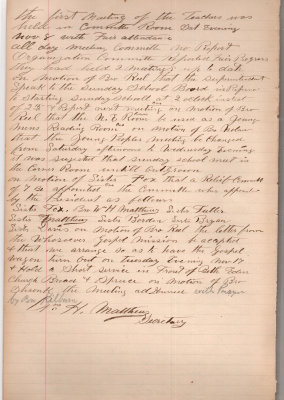 the first Meeting of the Teachers was
held in Committe Room Oct Evening
Nov 8 with Fair attendance
All day meeting Committe no Report
Organization Committe Reported Fair progress
they have held 2 meetings up to date
on Motion of Bro Reel that the Superintendent
Speak to the Sunday School Board in Refer
to Starting Sunday School at 2 oclock instid
of 2.30 & Report next meeting on Motion of Bro
Reel that the N.E Room be used as a Young
mens Reading Room on Motion of Bro
that the Young Peoples meeting be changed
from Saturday afternoon to Wednesday Evening
it was sugested that Sunday School meet in
the Corner Room untill
on motion of Sister Fox that a Relief Committe
of 7 be appointed the Committe was appoint
by the President as follows
Sister Fox. Bro W H Matthews Sister Fuller
Sister Matthews Sister Borden Sister Bryan
Sister Davis on Motion of Bro Reel the letter from
the Whosoever Gospel Mission be accepted
& that we arrange so as to have the Gospel
Wagon here but on Tuesday Evening Nov 17
& Hold a Short Service in Front of
Church Broad & Spruce on Motion of Bro
the Meeting adjourned with Prayer
by Bro
Wm H. Matthews
Secretary